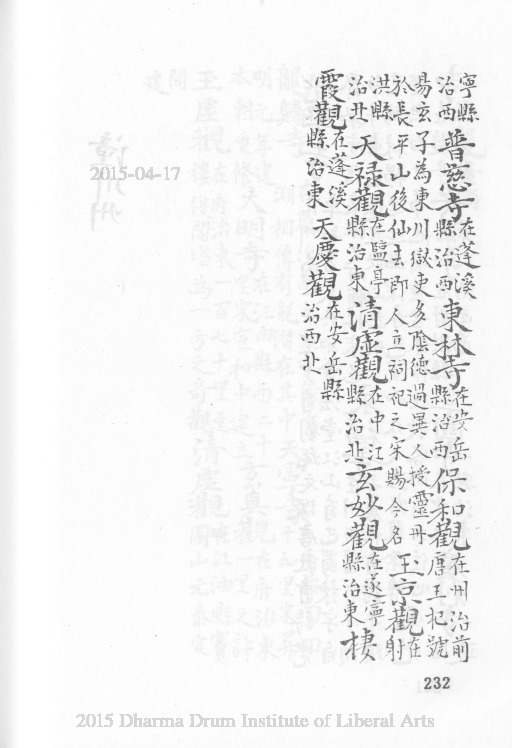 寧縣治西普慈寺在蓬溪縣治西東林寺在安岳縣治西保和觀在州治前唐王杞號
易玄子為東川獄吏多陰德過異人授靈丹於長平山後仙去即人立祠祀之宋賜今名玉京觀在射
洪縣治北天禄觀在盬亭縣治東清虛觀在中江縣治北玄妙觀在遂寧縣治東棲
霞觀在蓬溪縣治東天慶觀在安岳縣治西北
2015-04-17
232
2015 Dharma Drum Institute of Liberal Arts